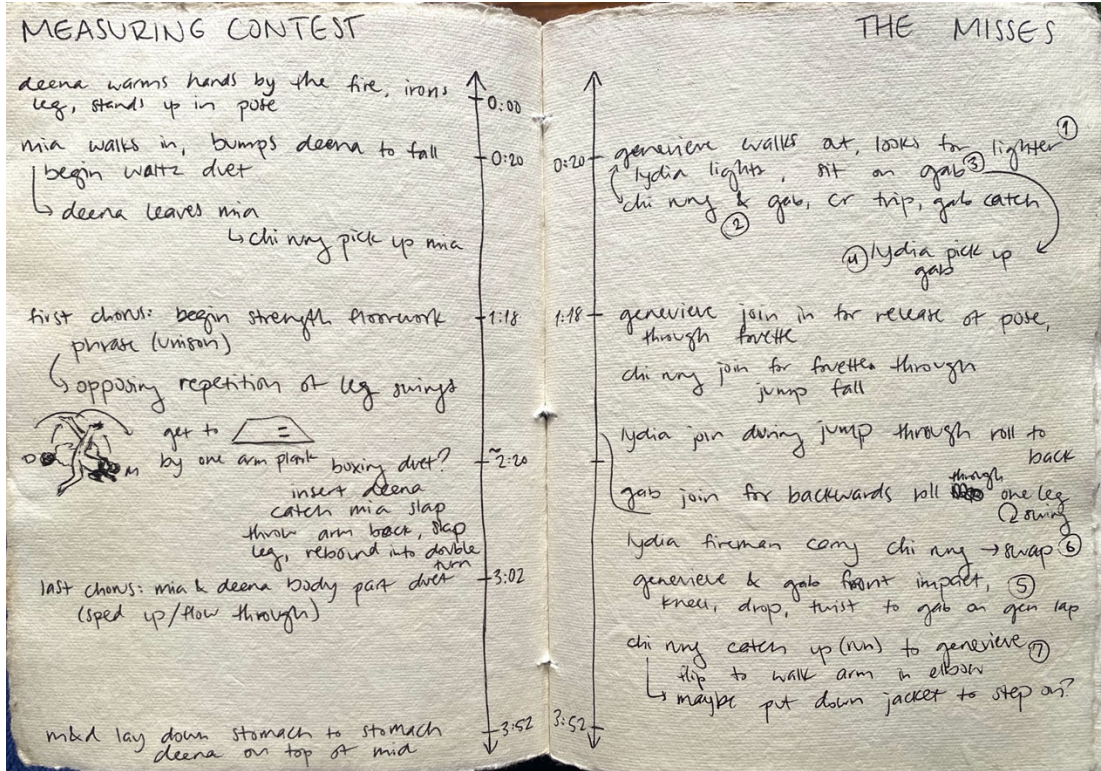 MEASURING CONTEST
deena warms hands by the fire, irons
leg, stands up in pose
0:00
mia walks in, bumps deena to fall
0:20
begin waltz duet
deena leaves mia
chi nny pick up mia
first chorus: begin strength floorwork
1:18
phrase (unison)
opposing repetition of leg swings
D
M
get to
by one arm plank
~2:20
boxing duet?
insert deena
catch mia slap
throw arm back, slap
leg, rebound into double
turn
last chorus: mia & deena body part duet
3:02
(sped up/flow through)
m&d lay down stomach to stomach
3:52
deena on top of mid
THE MISSES
0:20
genevieve walks out, looks for lighter 1
lydia lights, sit on gab 3
chi nny & gab, cr trip, gab catch
2
4 lydia pick up
gab
1:18
genevieve join in for release of pose,
through fovette
chi nny join for fovette through
jump fall
lydia join during jump through roll to
back
gab join for backwards roll through one leg
swing
lydia fireman carry chi nny → swap 6
genevieve & gab front impact, 5
kneel, drop, twist to gab on gen lap
chi nny catch up (run) to genevieve 7
flip to walk arm in elbow
maybe put down jacket to step on?
3:52